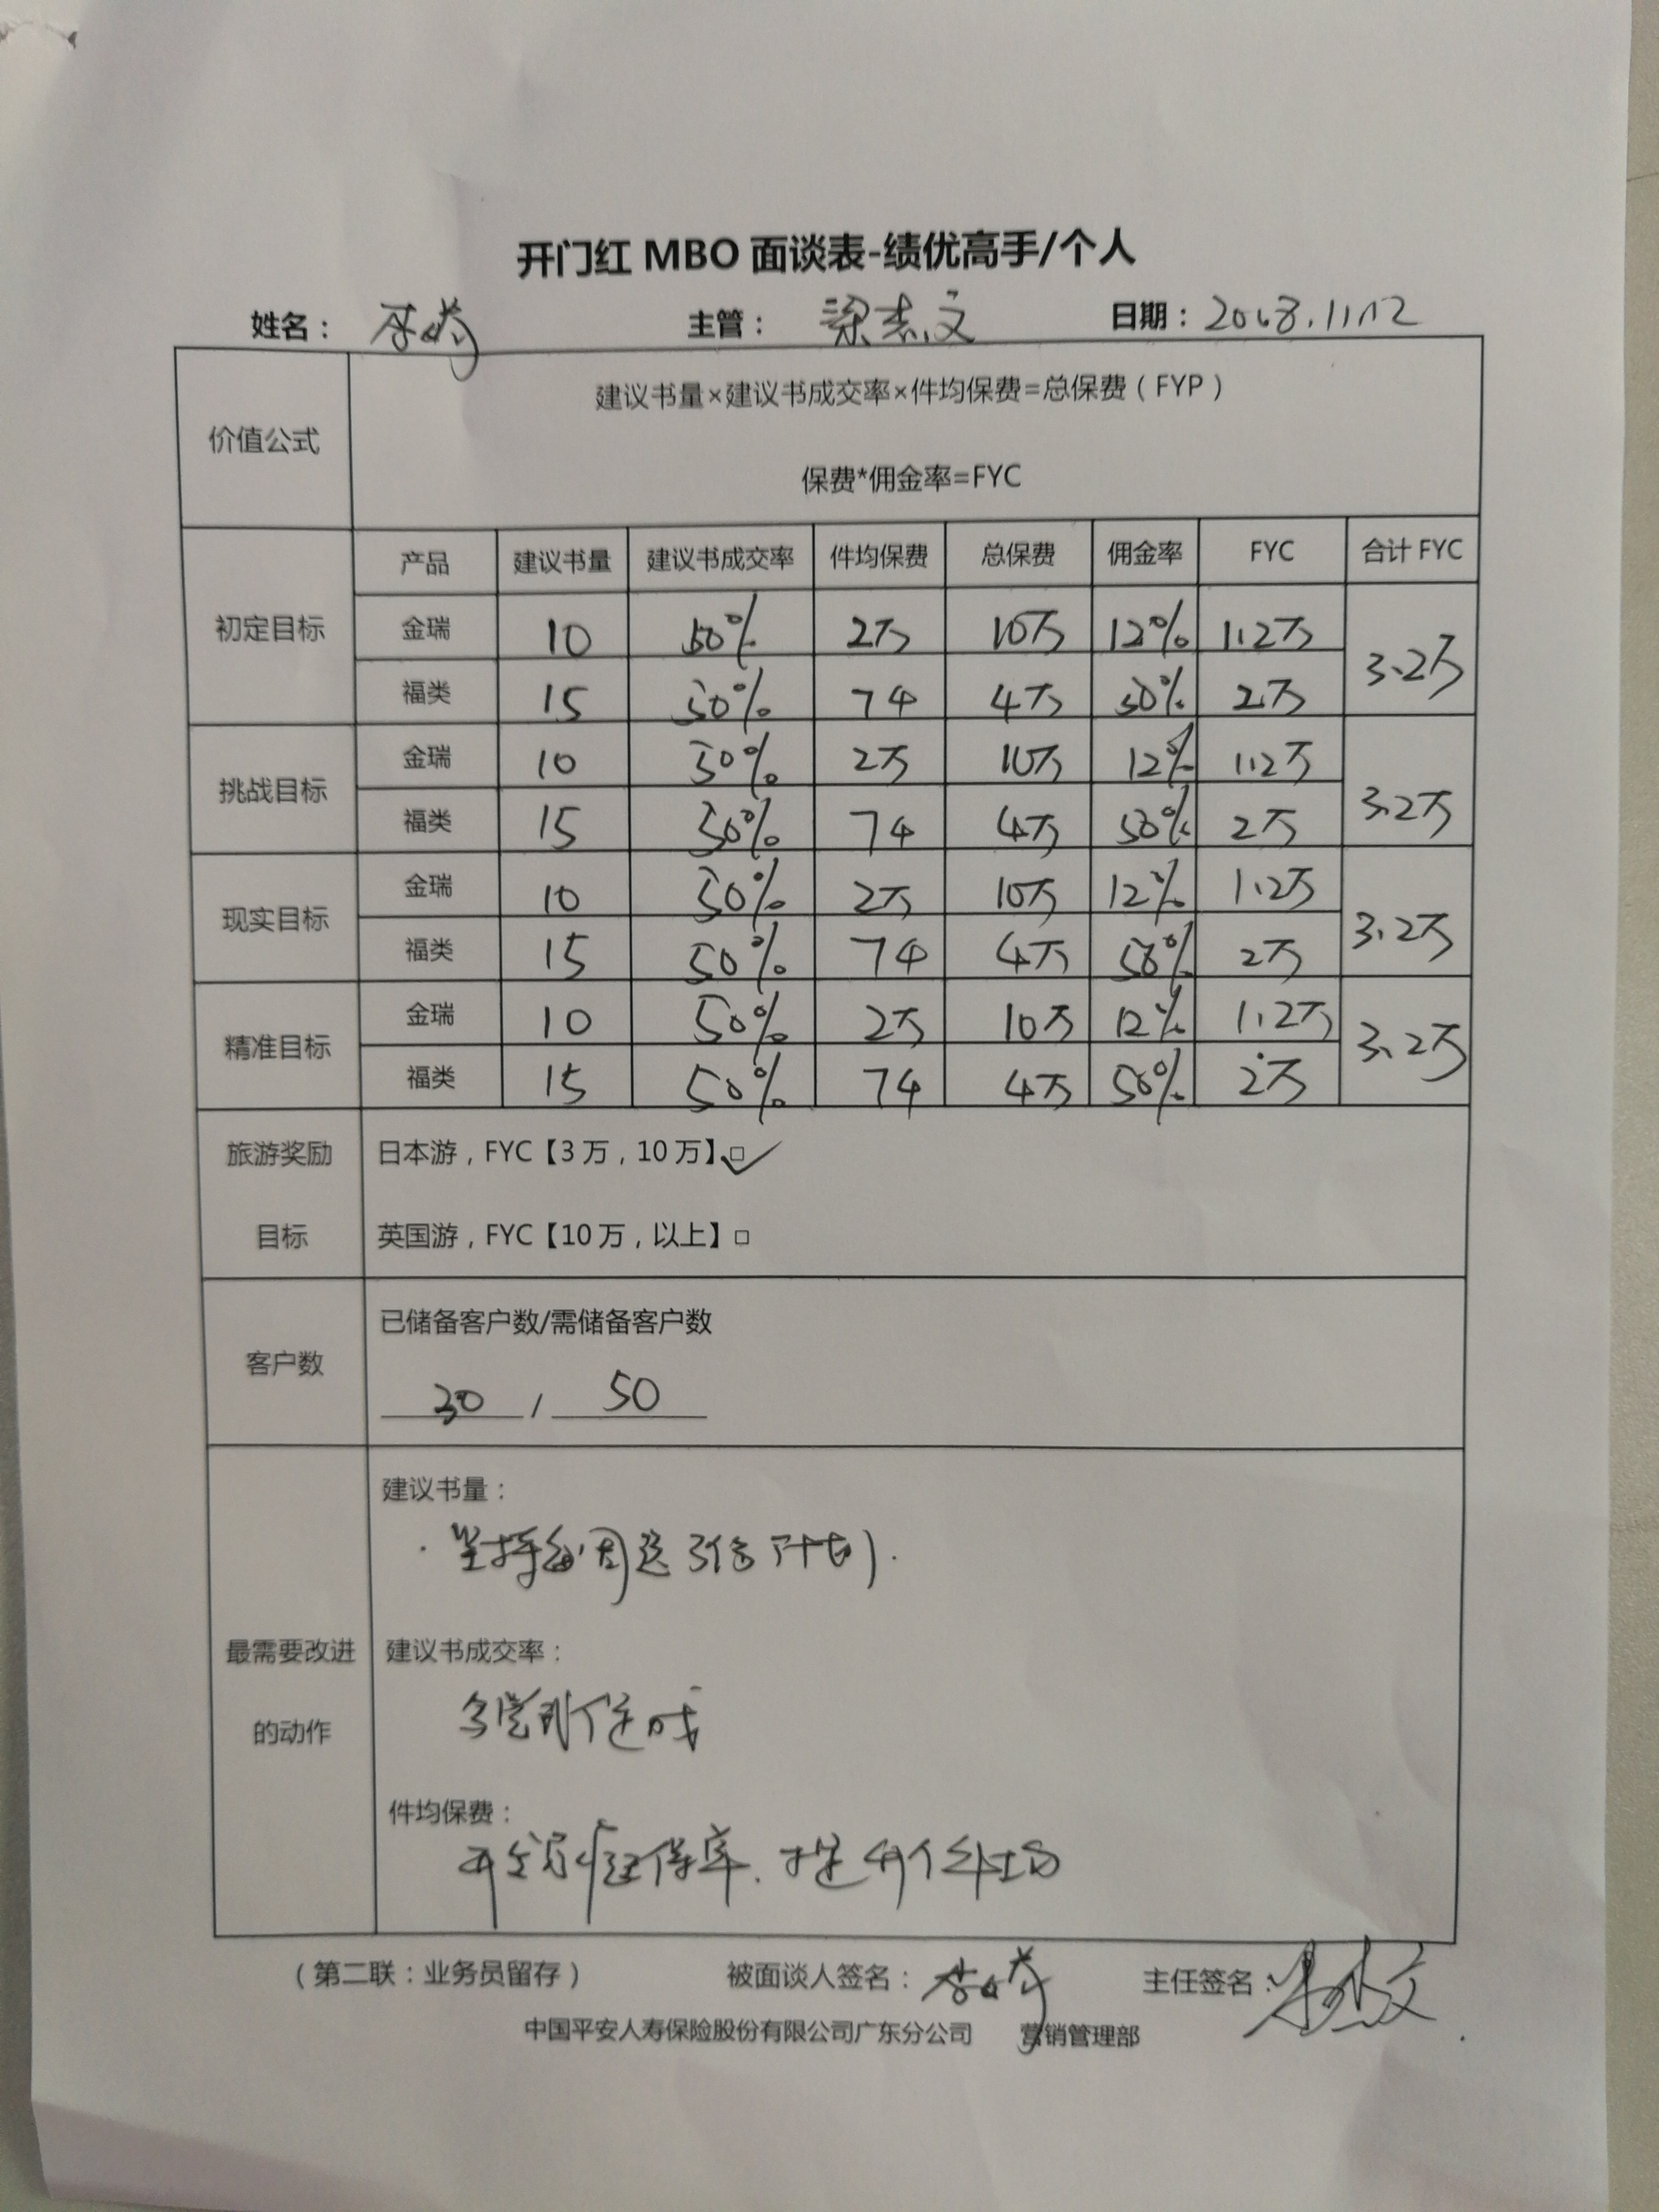 开门红 MBO 面谈表-绩优高手/个人
姓名： 主管：梁志文 日期：2018.11.12
价值公式 建议书量×建议书成交率×件均保费=总保费（FYP）
保费*佣金率=FYC
产品 建议书量 建议书成交率 件均保费 总保费 佣金率 FYC 合计 FYC
初定目标 金瑞 10 50% 2万 10万 12% 1.2万 3.2万
福类 15 50% 74 4万 50% 2万
挑战目标 金瑞 10 50% 2万 10万 12% 1.2万 3.2万
福类 15 50% 74 4万 50% 2万
现实目标 金瑞 10 50% 2万 10万 12% 1.2万 3.2万
福类 15 50% 74 4万 50% 2万
精准目标 金瑞 10 50% 2万 10万 12% 1.2万 3.2万
福类 15 50% 74 4万 50% 2万
旅游奖励 日本游，FYC【3万，10万】□✓
目标 英国游，FYC【10万，以上】□
客户数 已储备客户数/需储备客户数
30 / 50
建议书量：
坚持每周送3份计划.
最需要改进 建议书成交率：
的动作 促成
件均保费：
保障.提升件均
（第二联：业务员留存） 被面谈人签名： 主任签名：
中国平安人寿保险股份有限公司广东分公司 营销管理部